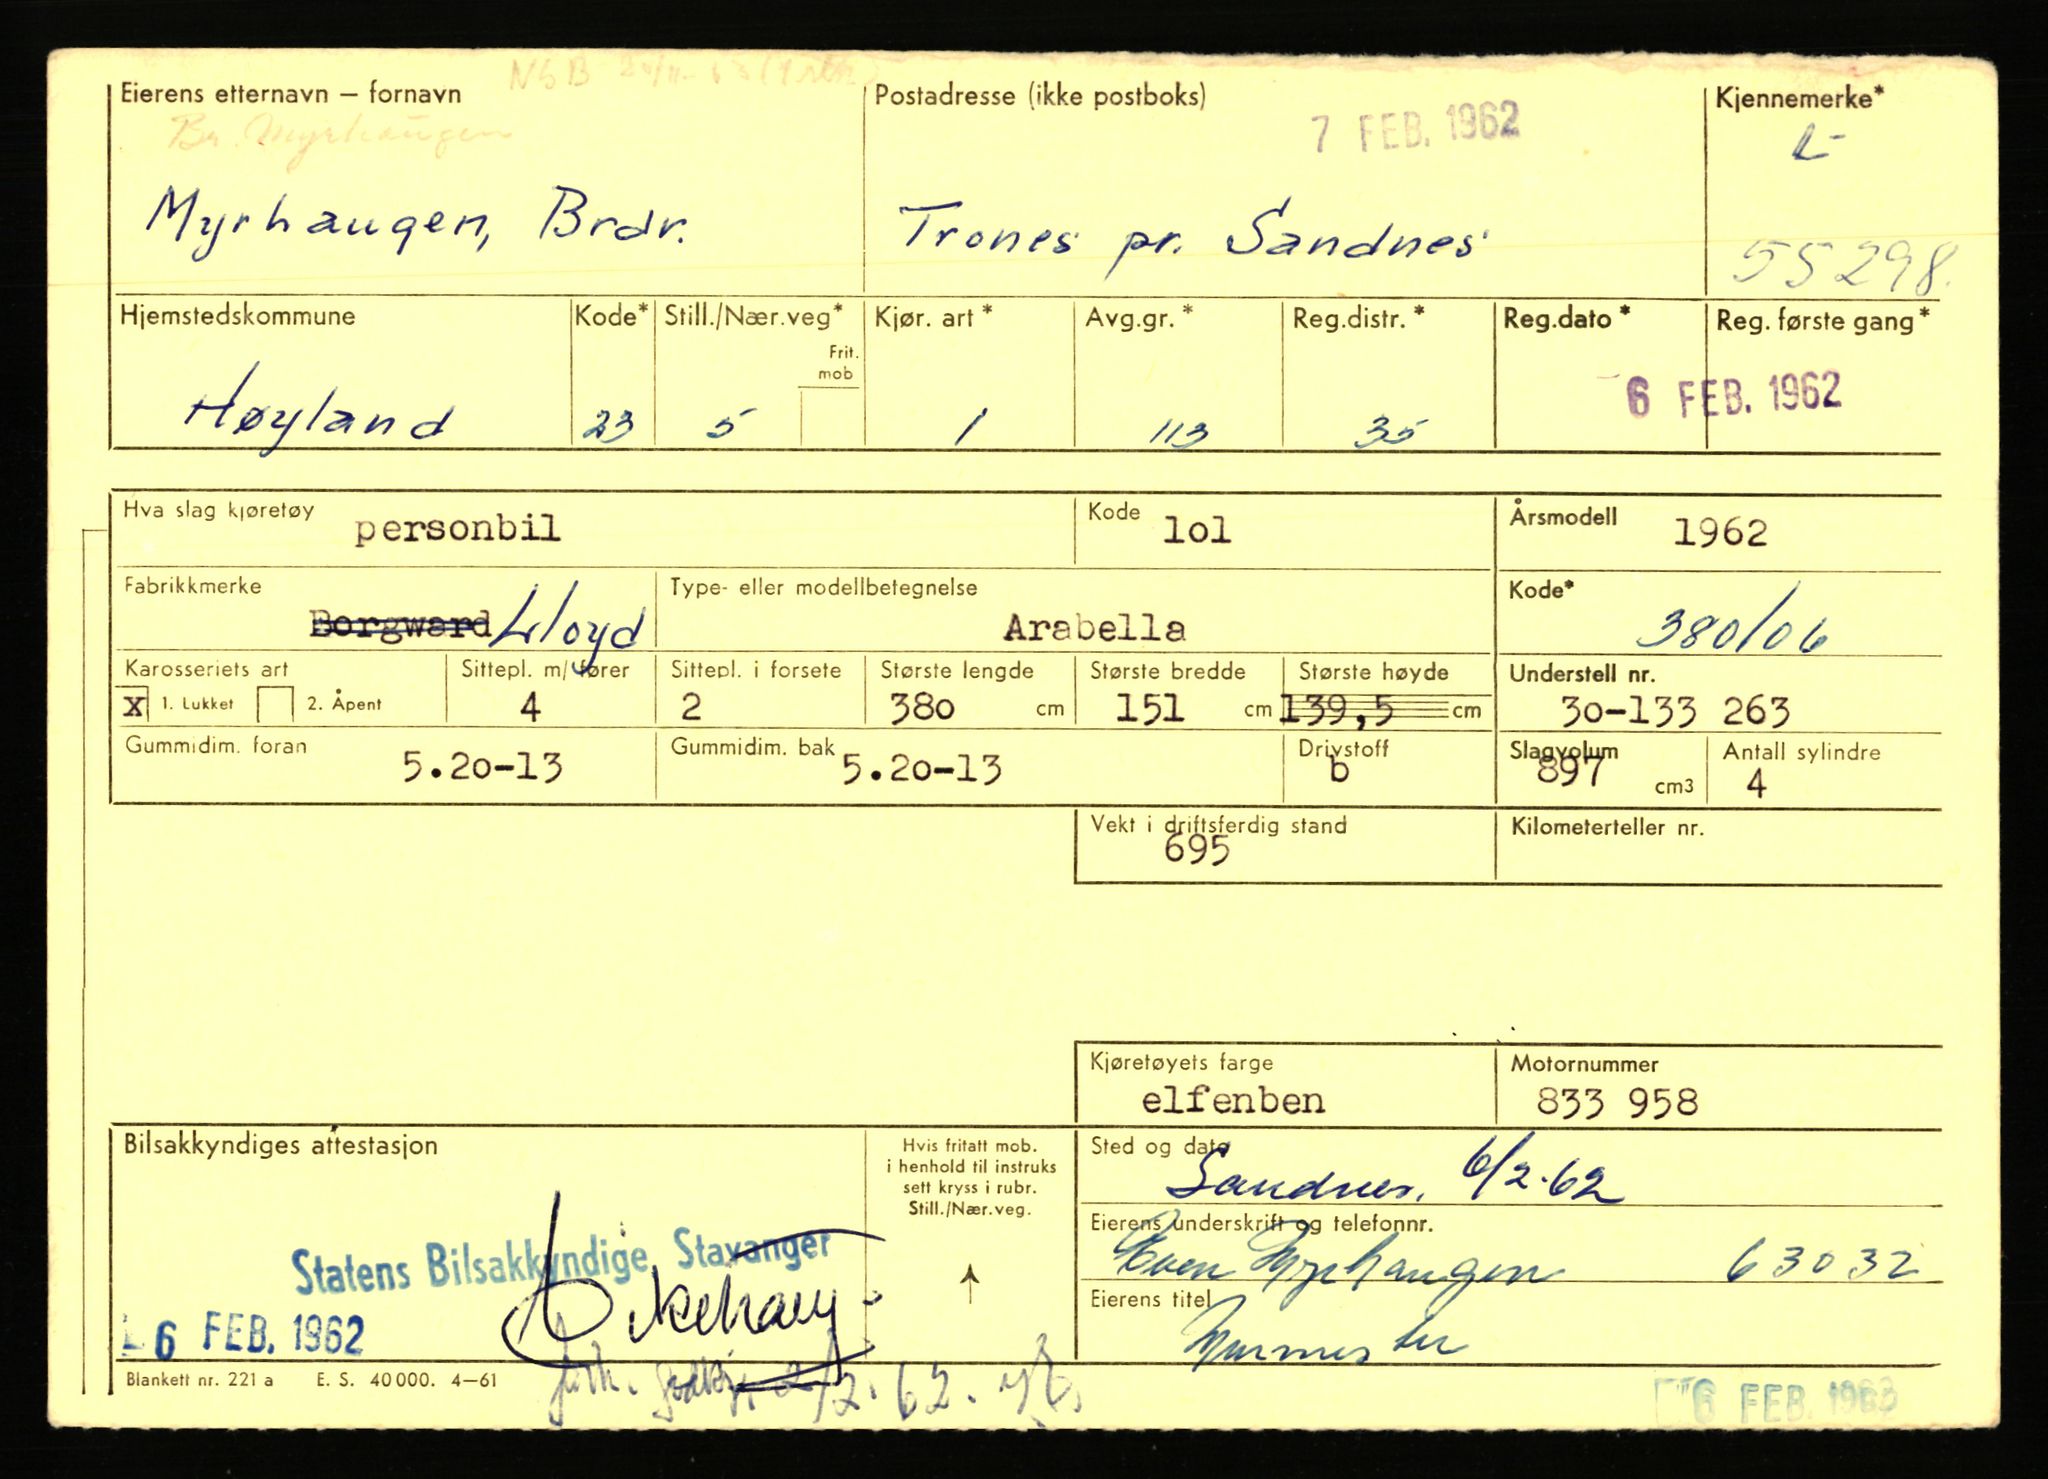 NSB
Eierens etternavn – fornavn
Postadresse (ikke postboks)
Kjennemerke*
Br. Myrhaugen
7 FEB. 1962
L-
Myrhaugen, Brdr.
Trones pr. Sandnes
55298.
Hjemstedskommune
Kode*
Still./Nær.veg*
Kjør. art *
Avg.gr. *
Reg.distr. *
Reg.dato *
Reg. første gang*
Frit. mob
Høyland
23
5
1
113
35
6 FEB. 1962
Hva slag kjøretøy
personbil
Kode
lol
Årsmodell
1962
Fabrikkmerke
Borgward Lloyd
Type- eller modellbetegnelse
Arabella
Kode*
380/06
Karosseriets art
X 1. Lukket 2. Åpent
Sittepl. m/fører
4
Sittepl. i forsete
2
Største lengde
380 cm
Største bredde
151 cm
Største høyde
139,5 cm
Understell nr.
30-133 263
Gummidim. foran
5.20-13
Gummidim. bak
5.20-13
Drivstoff
b
Slagvolum
897 cm3
Antall sylindre
4
Vekt i driftsferdig stand
695
Kilometerteller nr.
Kjøretøyets farge
elfenben
Motornummer
833 958
Bilsakkyndiges attestasjon
Hvis fritatt mob.
i henhold til instruks
sett kryss i rubr.
Still./Nær.veg.
Sted og dato
Sandnes, 6/2-62
Eierens underskrift og telefonnr.
Even Myrhaugen 63032
Statens Bilsakkyndige, Stavanger
6 FEB. 1962
Eierens titel
Murmester
Blankett nr. 221 a E. S. 40 000. 4–61
2/2.62.
6 FEB. 1963